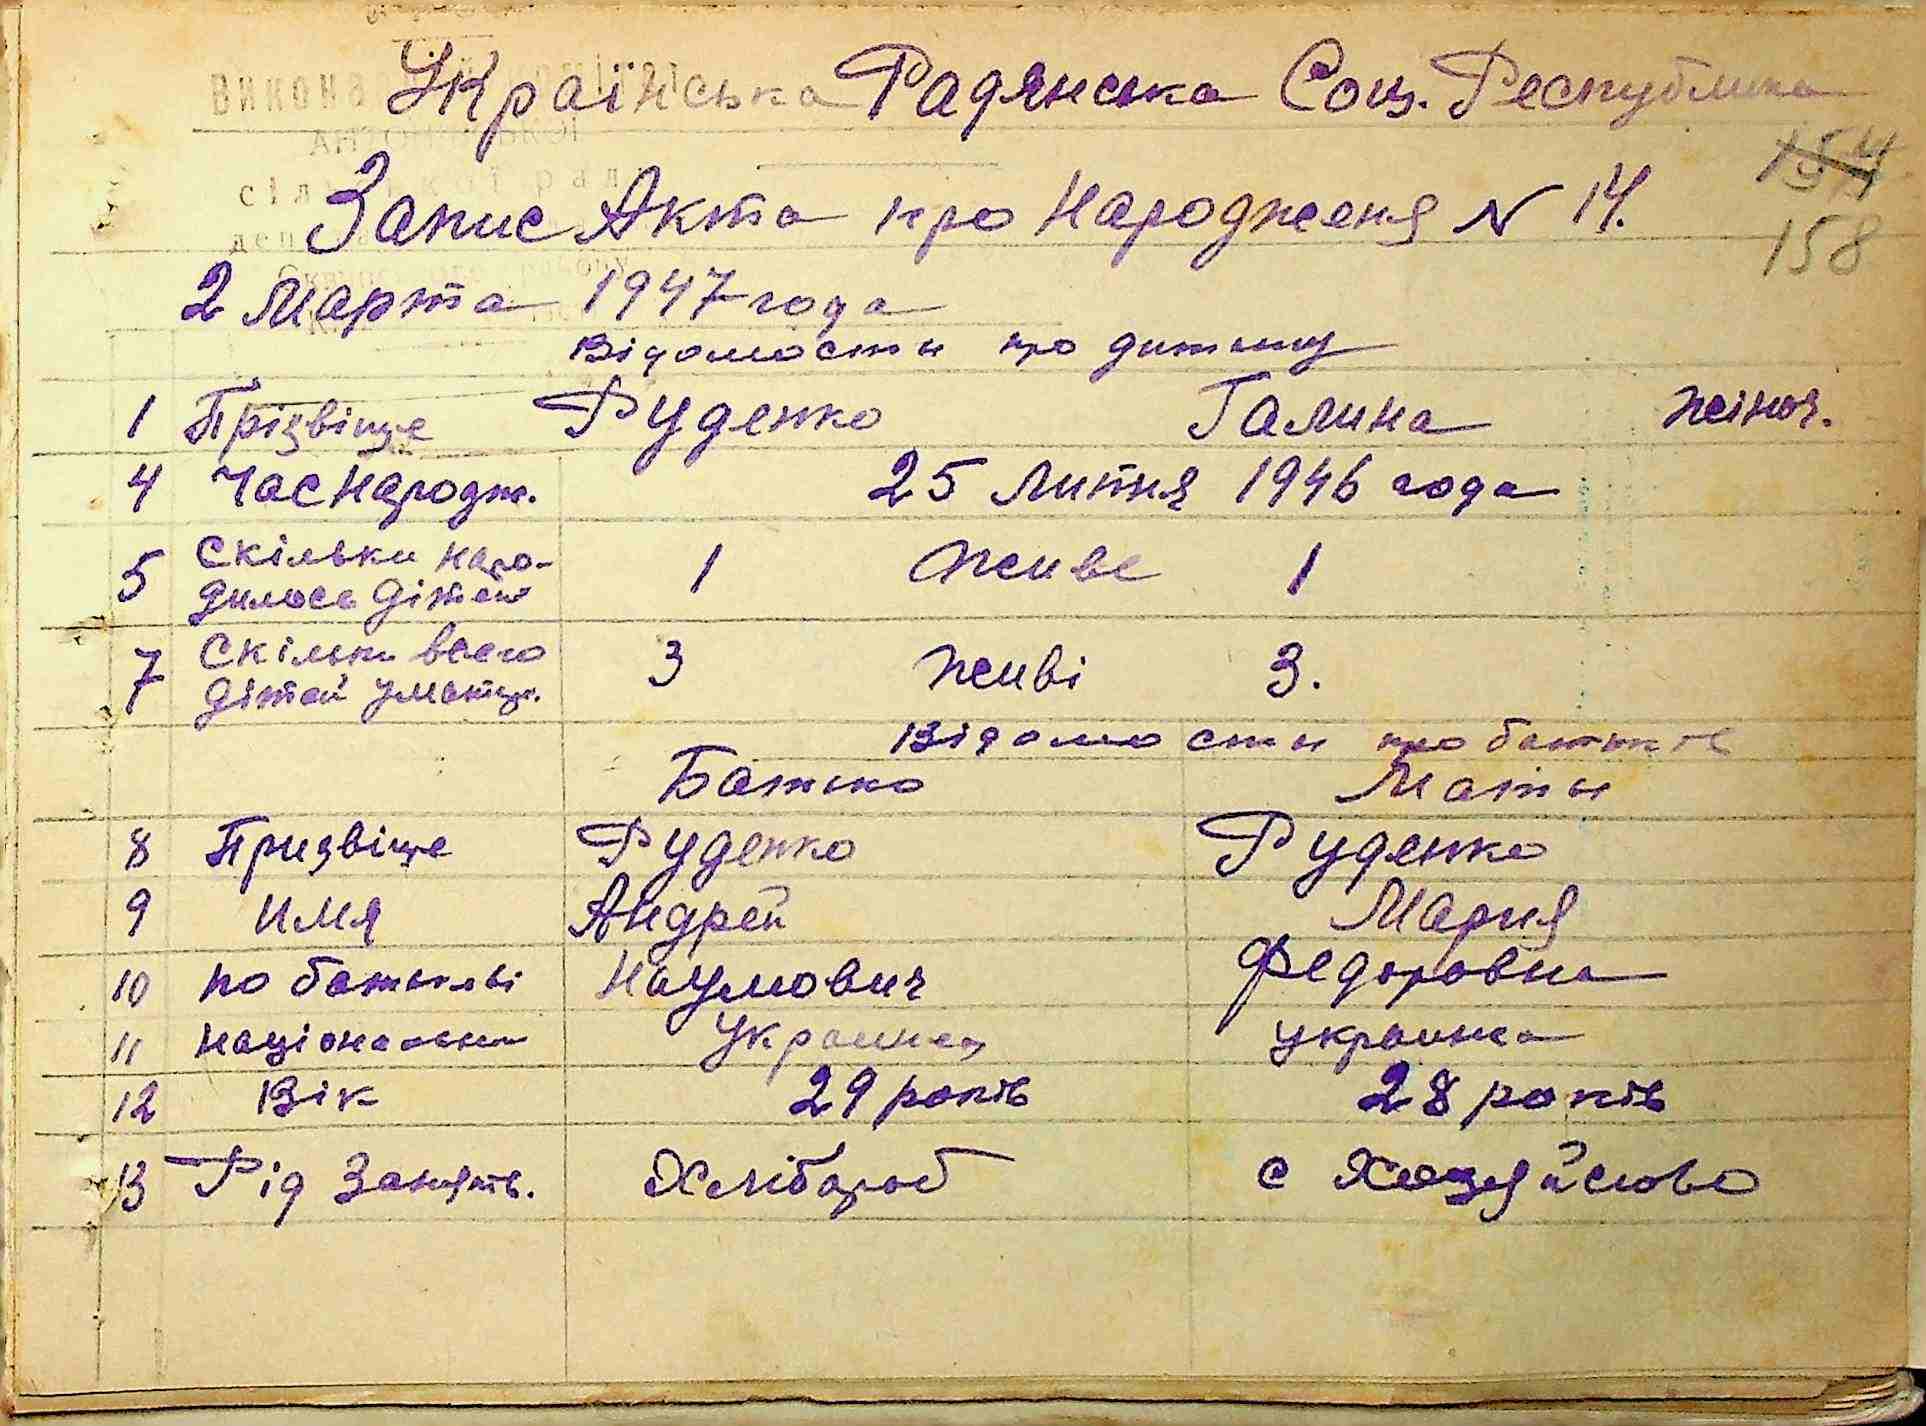 Українська Радянська Соц. Республика
Запис Акта про Народженя N 14.
154
158
2 Марта 1947 года
Відомости про дитину
1 Прізвіще Руденко Галина жіноч.
4 Час Народж. 25 Липня 1946 года
5 Скільки наро-
дилось дітей 1 Живе 1
7 Скільки всего
дітей у матер. 3 живі 3.
Відомости про батьків
Батько Маты
8 Призвіще Руденко Руденко
9 Имя Андрей Мария
10 по батькові Наумович Федоровна
11 націонализм Украинец украинка
12 Вік 29 років 28 років
13 Рід Занять. Хлібороб с Хозяйство